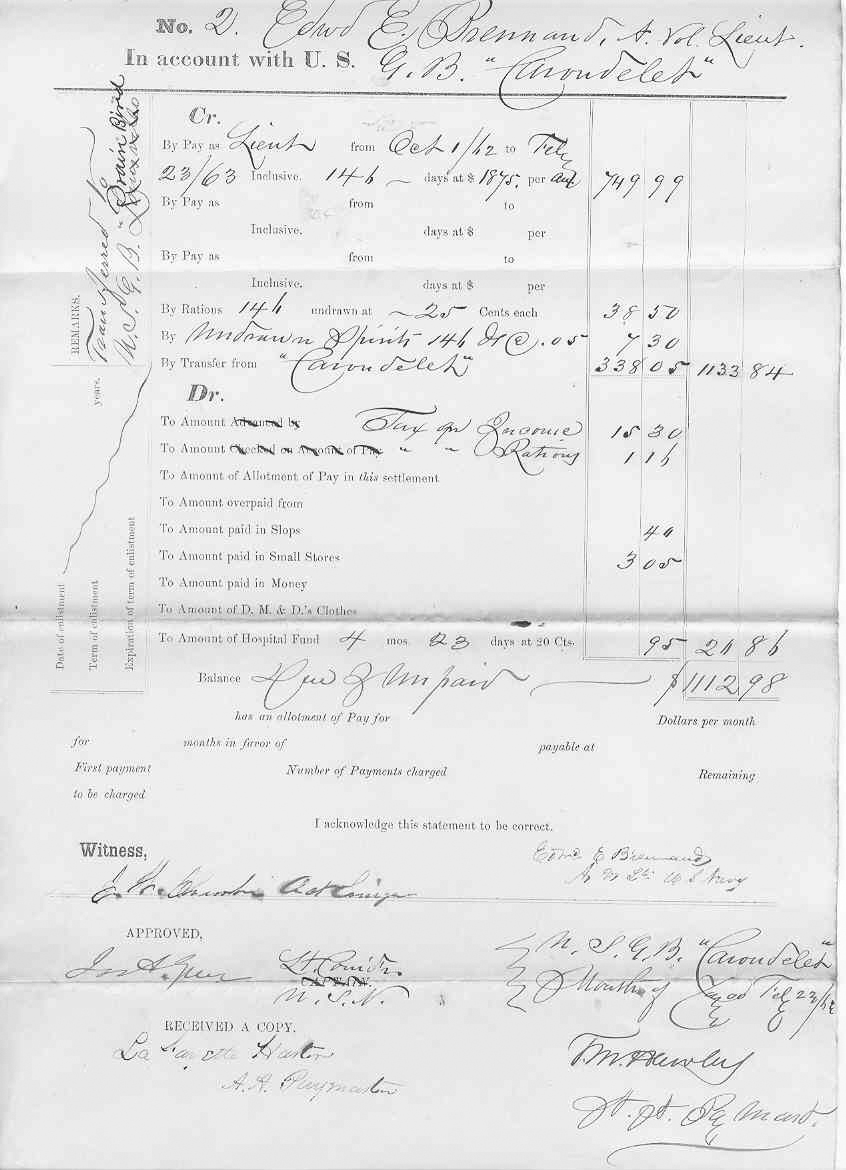 No. 2. Edwd E. Brennand, A. Vol. Lieut.
In account with U. S. G. B. "Carondelet"
REMARKS.
Transferred to
U. S. G. B.
years.
Date of enlistment
Term of enlistment
Expiration of term of enlistment
Cr.
By Pay as Lieut from Oct 1/62 to Feby
23/63 Inclusive. 146 days at $ 1875. per 749 99
By Pay as from to
Inclusive. days at $ per
By Pay as from to
Inclusive. days at $ per
By Rations 146 undrawn at 25 Cents each 38 50
By Undrawn Spirits 146 @ .05 7 30
By Transfer from "Carondelet" 338 05 1133 84
Dr.
To Amount Advanced by Tax on Income 15 30
To Amount Checked on Account of Pay " " Rations 1 16
To Amount of Allotment of Pay in this settlement
To Amount overpaid from
To Amount paid in Slops 40
To Amount paid in Small Stores 3 05
To Amount paid in Money
To Amount of D. M. & D.'s Clothes
To Amount of Hospital Fund 4 mos. 23 days at 20 Cts. 95 20 86
Balance Due & Unpaid $ 1112 98
has an allotment of Pay for Dollars per month
for months in favor of payable at
First payment Number of Payments charged Remaining
to be charged
I acknowledge this statement to be correct.
Witness,
Edwd E Brennand
U S Navy
APPROVED,
Jas A. Greer Lt. Comdr.
CAPTAIN.
U. S. N.
U. S. G. B. "Carondelet"
Mouth of Yazoo Feb 23/63
RECEIVED A COPY.
La Fayette
A. A. Paymaster